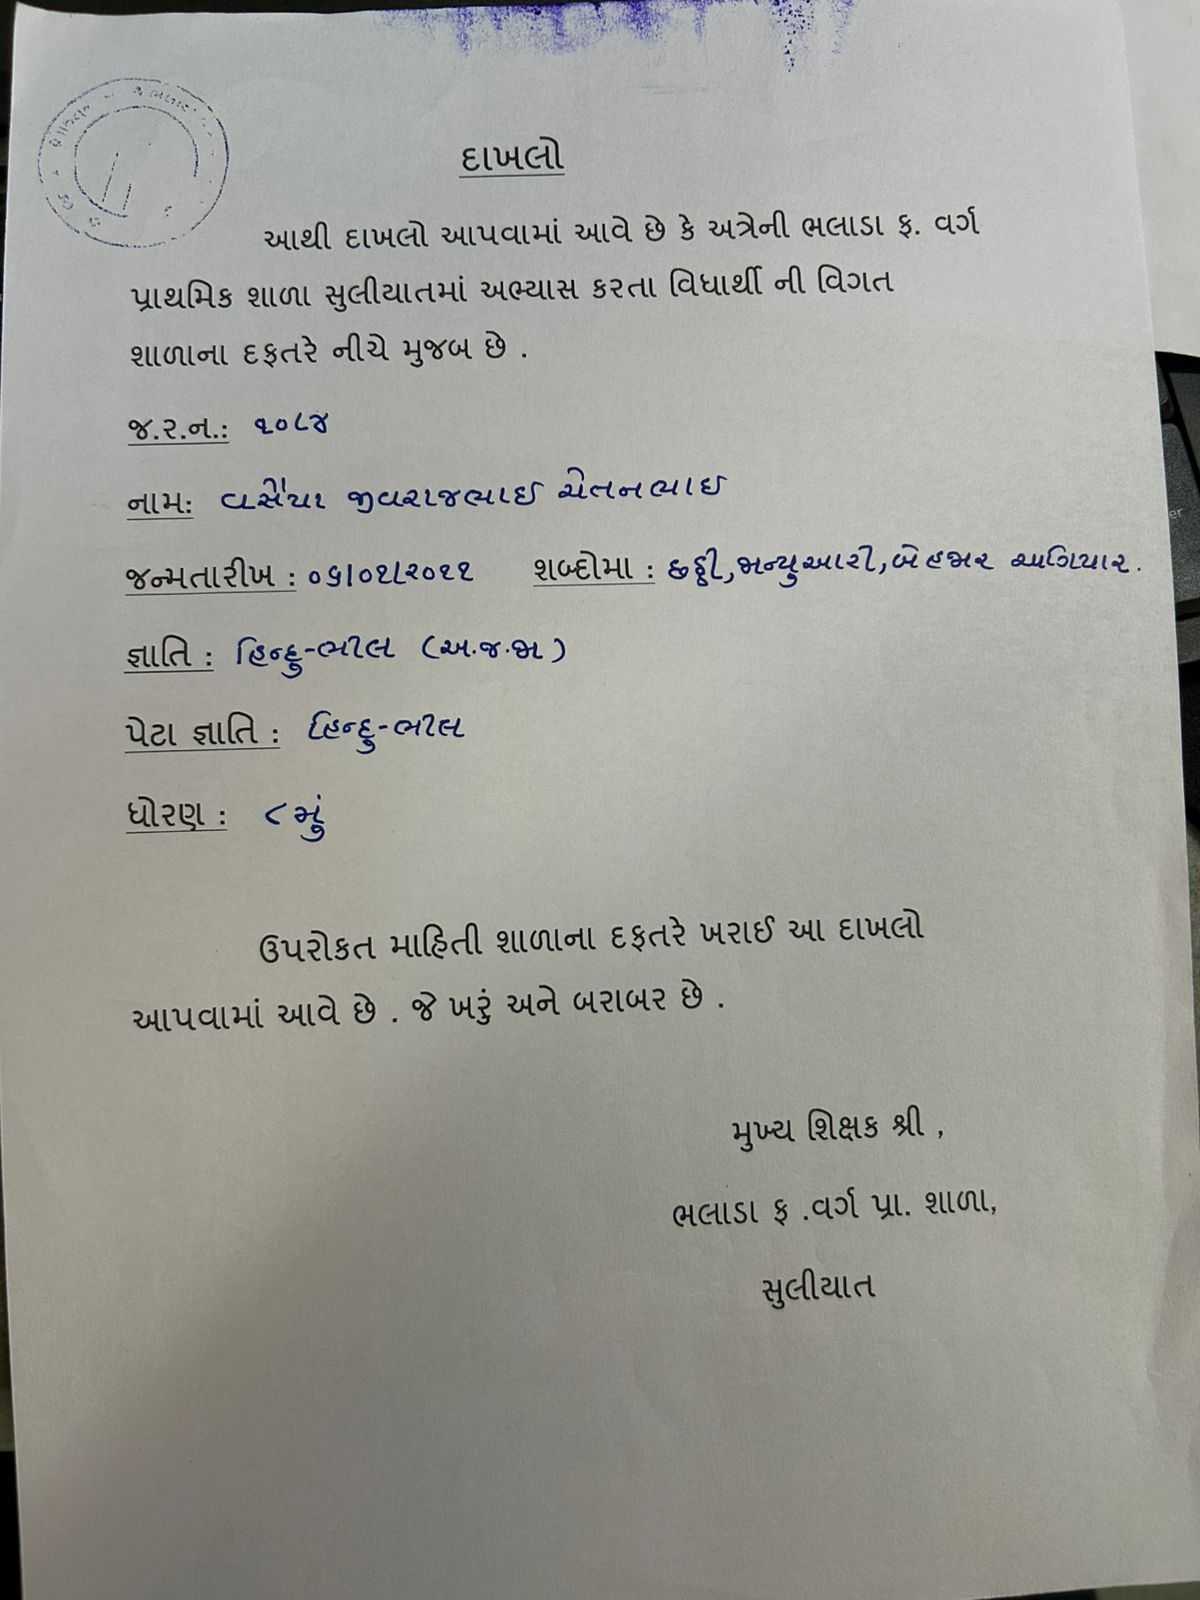 દાખલો
આથી દાખલો આપવામાં આવે છે કે અત્રેની ભલાડા ફ. વર્ગ
પ્રાથમિક શાળા સુલીયાતમાં અભ્યાસ કરતા વિધાર્થી ની વિગત
શાળાના દફતરે નીચે મુજબ છે .
જ.ર.ન.: ૧૦૮૪
નામ: વસૈયા જીવરાજભાઈ ચેતનભાઈ
જન્મતારીખ : ૦૬/૦૧/૨૦૧૧ શબ્દોમા : છઠ્ઠી, જાન્યુઆરી, બે હજાર અગિયાર.
જ્ઞાતિ : હિન્દુ-ભીલ (અ.જ.જા)
પેટા જ્ઞાતિ : હિન્દુ-ભીલ
ધોરણ : ૮ મું
ઉપરોકત માહિતી શાળાના દફતરે ખરાઈ આ દાખલો
આપવામાં આવે છે . જે ખરું અને બરાબર છે .
મુખ્ય શિક્ષક શ્રી ,
ભલાડા ફ .વર્ગ પ્રા. શાળા,
સુલીયાત